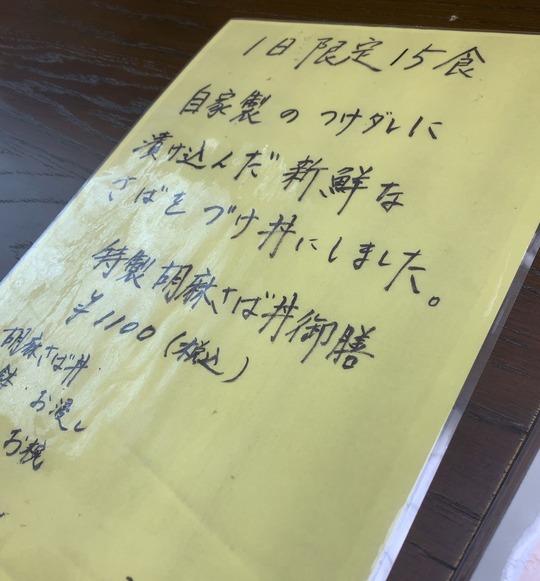 1日限定15食
自家製のつけダレに
漬け込んだ新鮮な
さばをづけ丼にしました。
特製胡麻さば丼御膳
¥1100(税込)
胡麻さば丼
鉢 お浸し
お椀